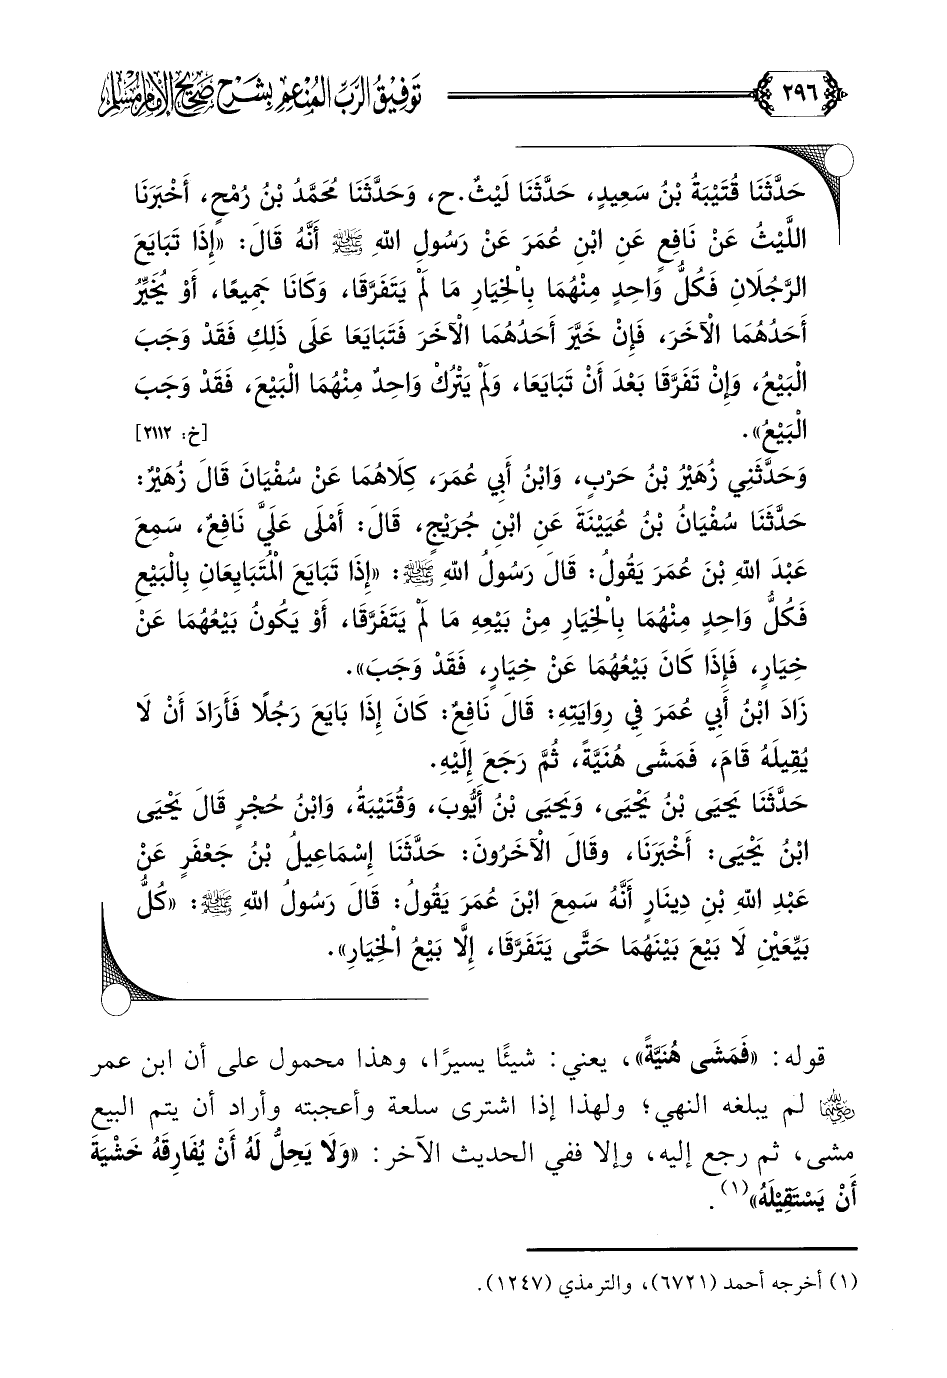 ٢٩٦
توفيق الرب المنعم بشرح صحيح الإمام مسلم
حَدَّثَنَا قُتَيْبَةُ بْنُ سَعِيدٍ، حَدَّثَنَا لَيْثٌ. ح، وَحَدَّثَنَا مُحَمَّدُ بْنُ رُمْحٍ، أَخْبَرَنَا
اللَّيْثُ عَنْ نَافِعٍ عَنِ ابْنِ عُمَرَ عَنْ رَسُولِ اللهِ ﷺ أَنَّهُ قَالَ: «إِذَا تَبَايَعَ
الرَّجُلَانِ فَكُلُّ وَاحِدٍ مِنْهُمَا بِالْخِيَارِ مَا لَمْ يَتَفَرَّقَا، وَكَانَا جَمِيعًا، أَوْ يُخَيِّرُ
أَحَدُهُمَا الْآخَرَ، فَإِنْ خَيَّرَ أَحَدُهُمَا الْآخَرَ فَتَبَايَعَا عَلَى ذَلِكِ فَقَدْ وَجَبَ
الْبَيْعُ، وَإِنْ تَفَرَّقَا بَعْدَ أَنْ تَبَايَعَا، وَلَمْ يَتْرُكْ وَاحِدٌ مِنْهُمَا الْبَيْعَ، فَقَدْ وَجَبَ
الْبَيْعُ». [خ: ٢١١٢]
وَحَدَّثَنِي زُهَيْرُ بْنُ حَرْبٍ، وَابْنُ أَبِي عُمَرَ، كِلَاهُمَا عَنْ سُفْيَانَ قَالَ زُهَيْرٌ:
حَدَّثَنَا سُفْيَانُ بْنُ عُيَيْنَةَ عَنِ ابْنِ جُرَيْجٍ، قَالَ: أَمْلَى عَلَيَّ نَافِعٌ، سَمِعَ
عَبْدَ اللهِ بْنَ عُمَرَ يَقُولُ: قَالَ رَسُولُ اللهِ ﷺ: «إِذَا تَبَايَعَ الْمُتَبَايِعَانِ بِالْبَيْعِ
فَكُلُّ وَاحِدٍ مِنْهُمَا بِالْخِيَارِ مِنْ بَيْعِهِ مَا لَمْ يَتَفَرَّقَا، أَوْ يَكُونُ بَيْعُهُمَا عَنْ
خِيَارٍ، فَإِذَا كَانَ بَيْعُهُمَا عَنْ خِيَارٍ، فَقَدْ وَجَبَ».
زَادَ ابْنُ أَبِي عُمَرَ فِي رِوَايَتِهِ: قَالَ نَافِعٌ: كَانَ إِذَا بَايَعَ رَجُلًا فَأَرَادَ أَنْ لَا
يُقِيلَهُ قَامَ، فَمَشَى هُنَيَّةً، ثُمَّ رَجَعَ إِلَيْهِ.
حَدَّثَنَا يَحْيَى بْنُ يَحْيَى، وَيَحْيَى بْنُ أَيُّوبَ، وَقُتَيْبَةُ، وَابْنُ حُجْرٍ قَالَ يَحْيَى
ابْنُ يَحْيَى: أَخْبَرَنَا، وقَالَ الْآخَرُونَ: حَدَّثَنَا إِسْمَاعِيلُ بْنُ جَعْفَرٍ عَنْ
عَبْدِ اللهِ بْنِ دِينَارٍ أَنَّهُ سَمِعَ ابْنَ عُمَرَ يَقُولُ: قَالَ رَسُولُ اللهِ ﷺ: «كُلُّ
بَيِّعَيْنِ لَا بَيْعَ بَيْنَهُمَا حَتَّى يَتَفَرَّقَا، إِلَّا بَيْعُ الْخِيَارِ».
قوله: «فَمَشَى هُنَيَّةً»، يعني: شيئًا يسيرًا، وهذا محمول على أن ابن عمر
رضي الله عنهما لم يبلغه النهي؛ ولهذا إذا اشترى سلعة وأعجبته وأراد أن يتم البيع
مشى، ثم رجع إليه، وإلا ففي الحديث الآخر: «وَلَا يَحِلُّ لَهُ أَنْ يُفَارِقَهُ خَشْيَةَ
أَنْ يَسْتَقِيْلَهُ»(١).
(١) أخرجه أحمد (٦٧٢١)، والترمذي (١٢٤٧).